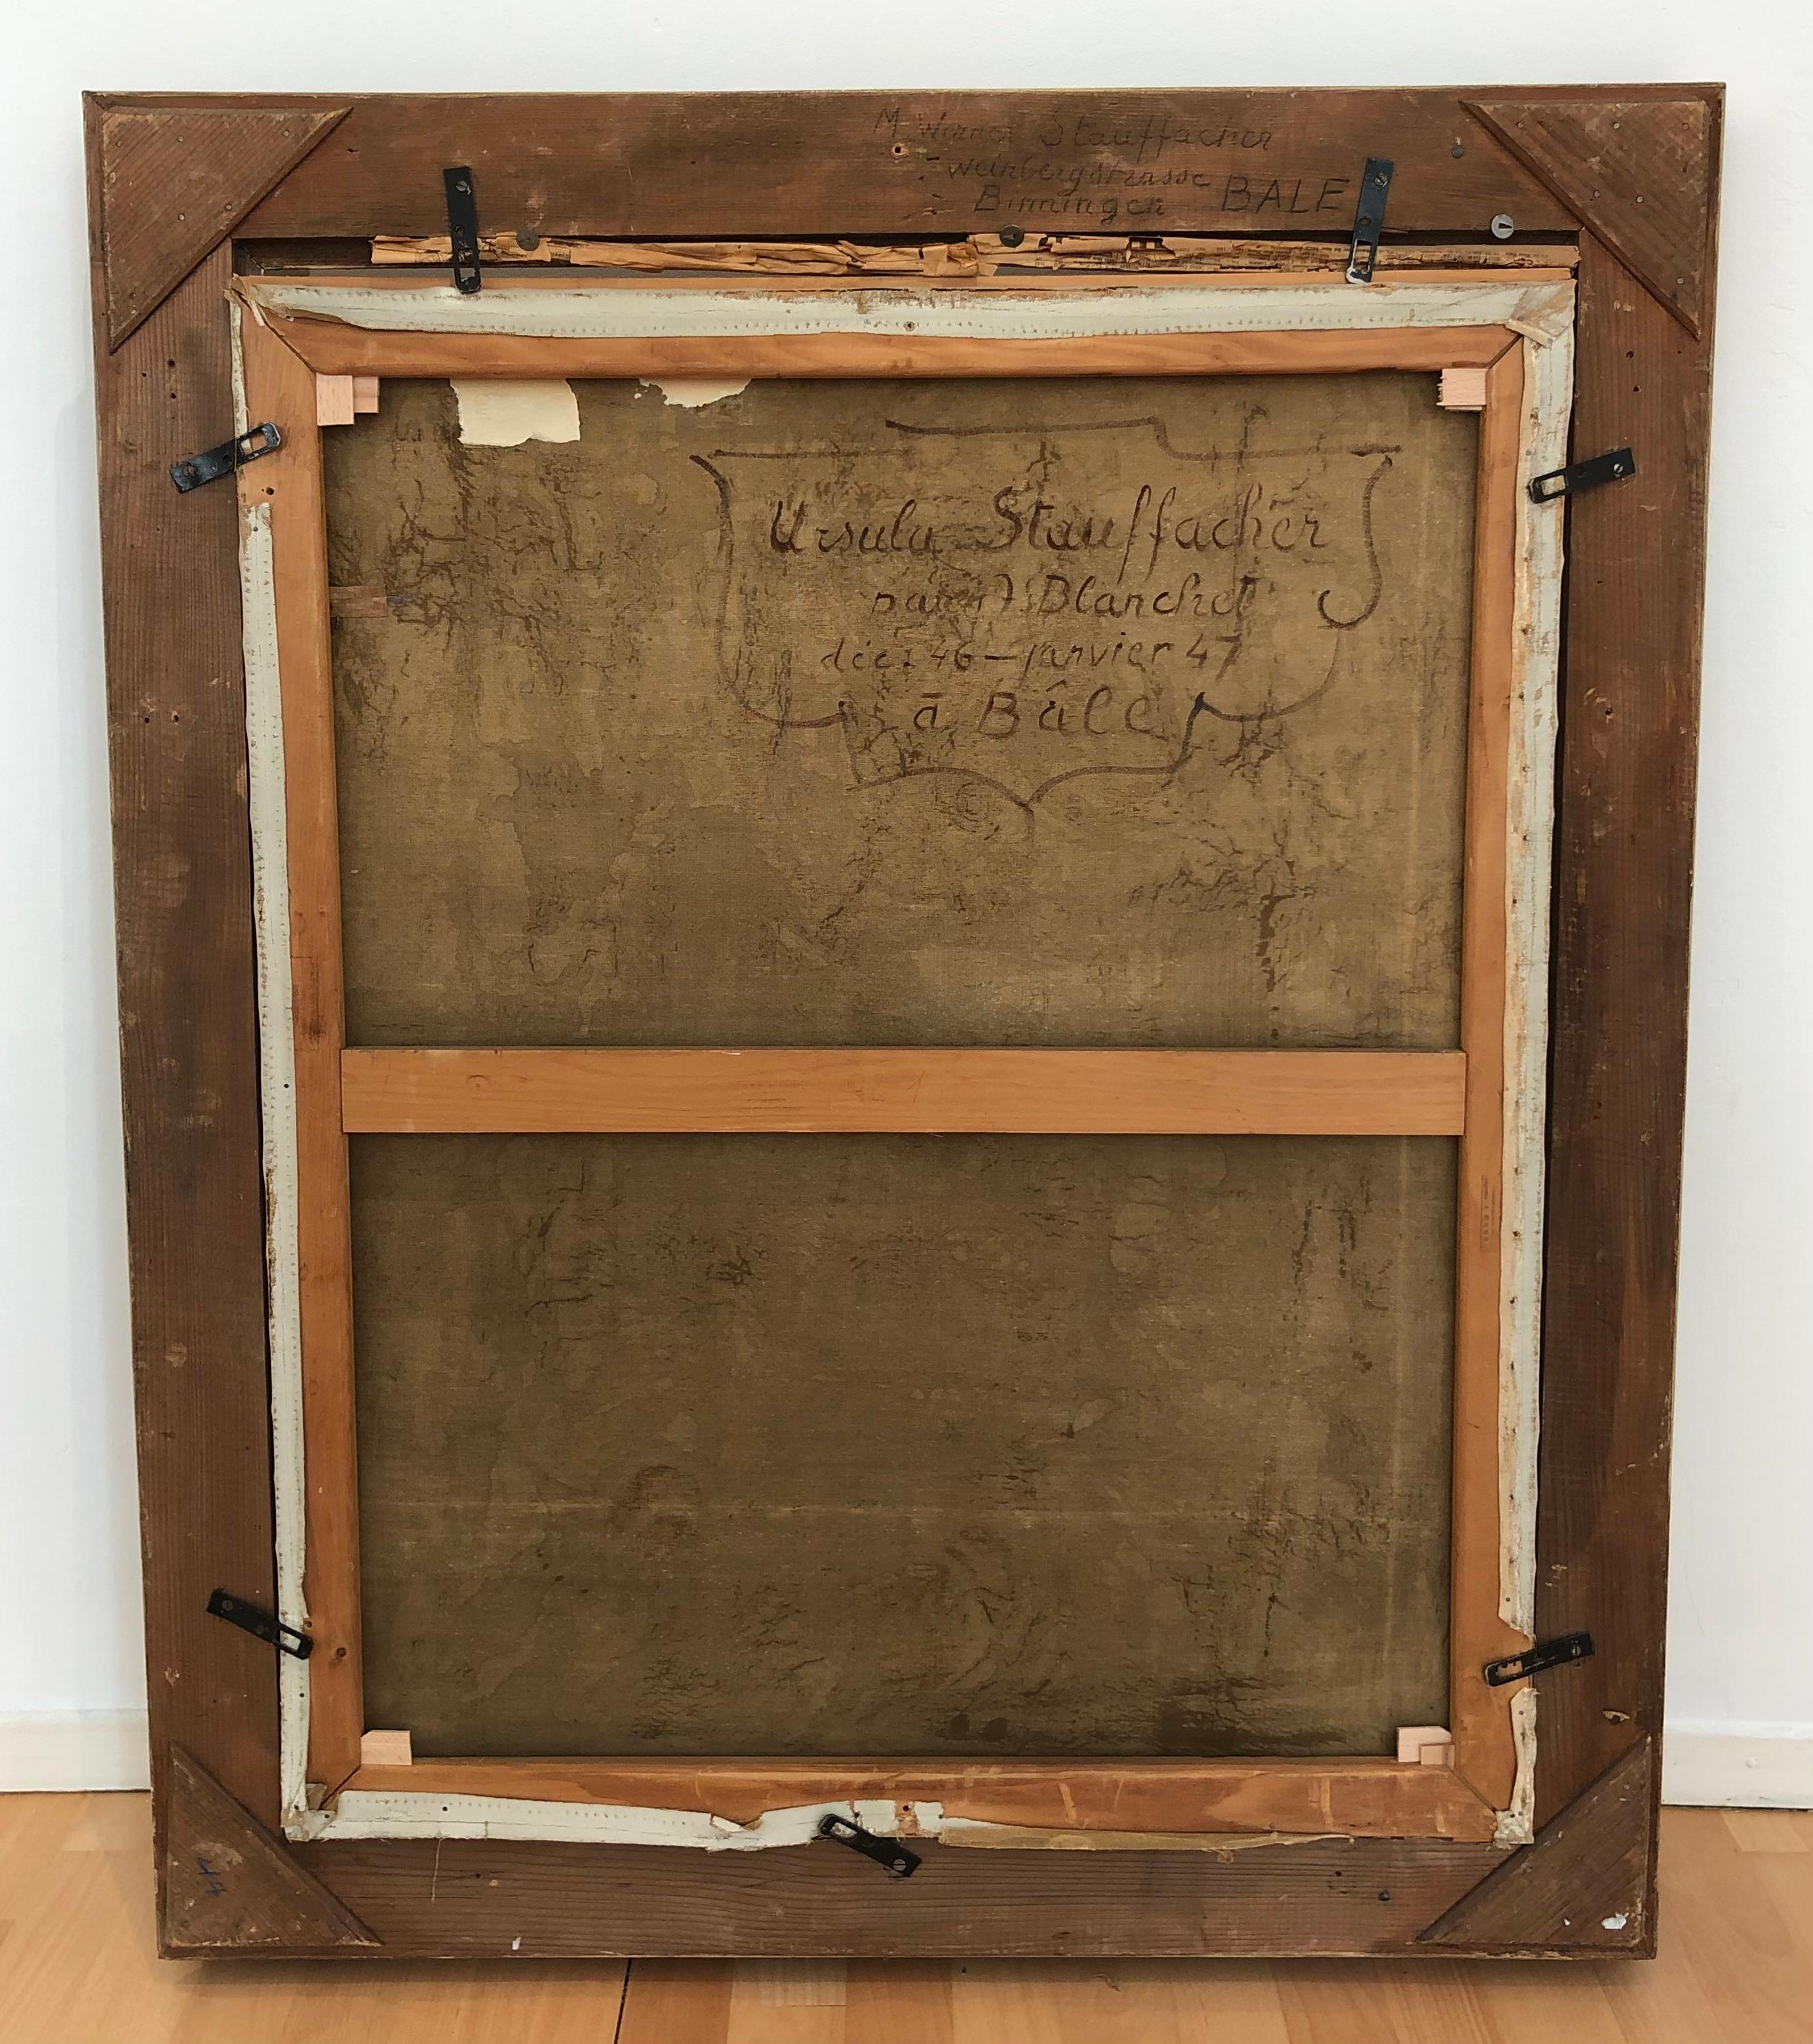 M. Werner Stauffacher
Weinbergstrasse
Binningen BALE
Ursula Stauffacher
Blanchet
déc: 46 - janvier 47
à Bâle